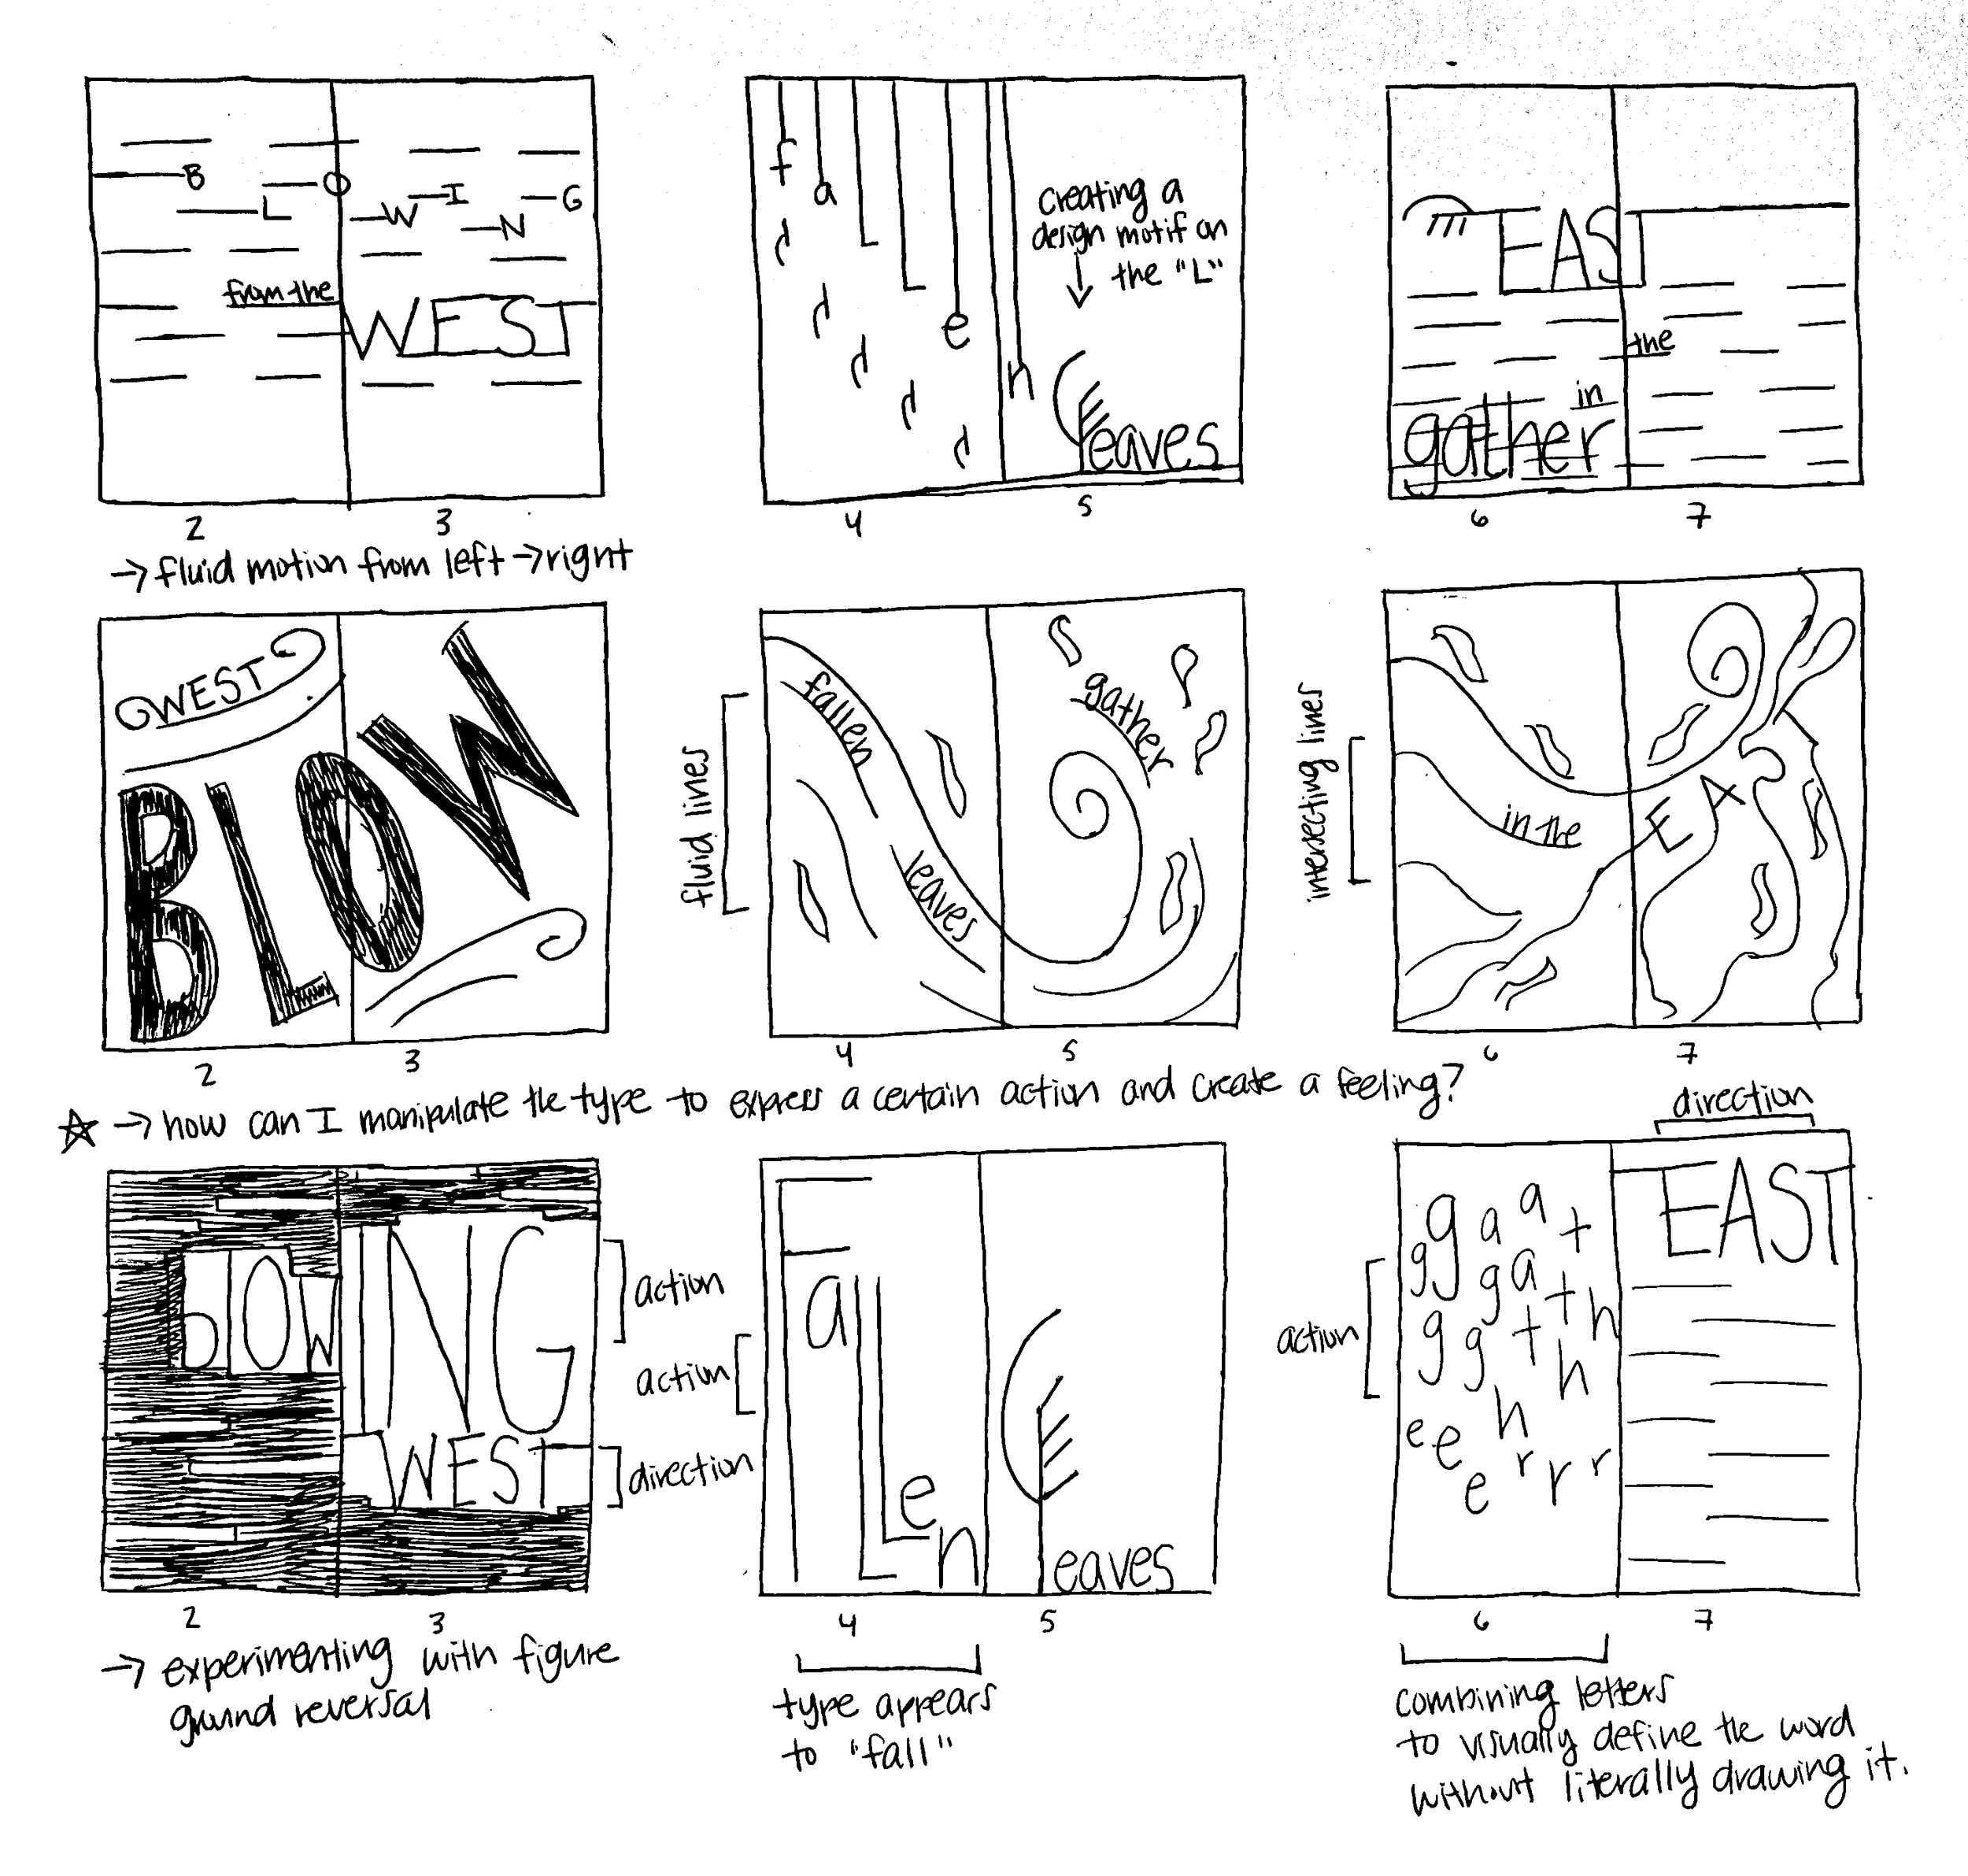 BLOWING
from the
WEST
2 3
fallen
creating a
design motif on
the "L"
Leaves
4 5
EAST
the
in
gather
6 7
→ fluid motion from left → right
WEST
BLOW
2 3
fluid lines
fallen
leaves
gather
4 5
intersecting lines
in the
EAST
6 7
☆ → how can I manipulate the type to express a certain action and create a feeling?
BLOW
ING
WEST
action
direction
2 3
→ experimenting with figure
ground reversal
action
FaLLen
Leaves
4 5
type appears
to "fall"
direction
action
g a a t
g g g a t h
g g t h
e e h
e r r r
EAST
6 7
combining letters
to visually define the word
without literally drawing it.